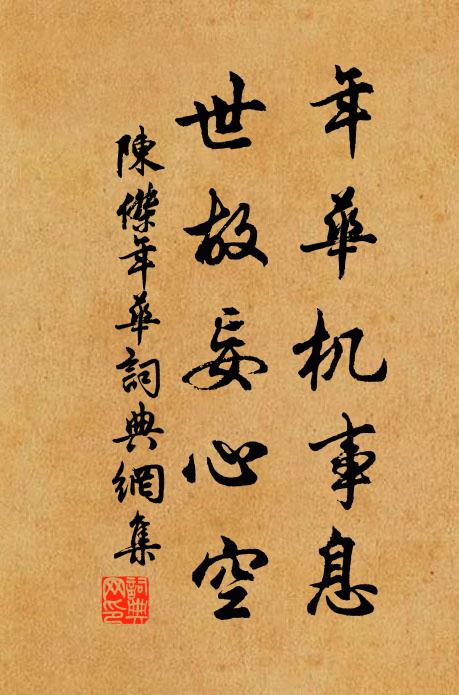 年華机事息
世故妄心空
陳傑年華詞典網集
詞典网印